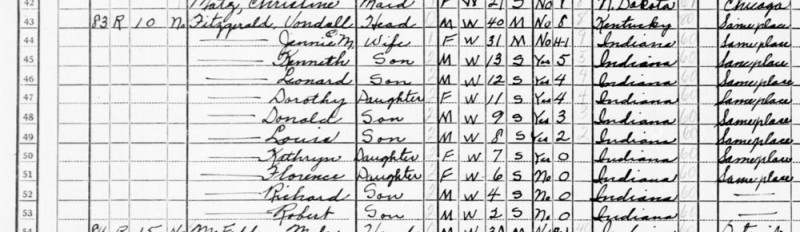 42 Christine Maid F W 21 S No 8 N. Dakota Chicago
43 83 R 10 No Fitzgerald, Vondall Head M W 40 M No 8 Kentucky Same place
44 —— Jennie E M. Wife F W 31 M No H-1 Indiana Same place
45 —— Kenneth Son M W 13 S Yes 5 Indiana Same place
46 —— Leonard Son M W 12 S Yes 4 Indiana Same place
47 —— Dorothy Daughter F W 11 S Yes 4 Indiana Same place
48 —— Donald Son M W 9 S Yes 3 Indiana Same place
49 —— Louis Son M W 8 S Yes 2 Indiana Same place
50 —— Kathryn Daughter F W 7 S Yes 0 Indiana Same place
51 —— Florence Daughter F W 6 S No 0 Indiana Same place
52 —— Richard Son M W 4 S No 0 Indiana ——
53 —— Robert Son M W 2 S No 0 Indiana ——
54 R 15 No M W